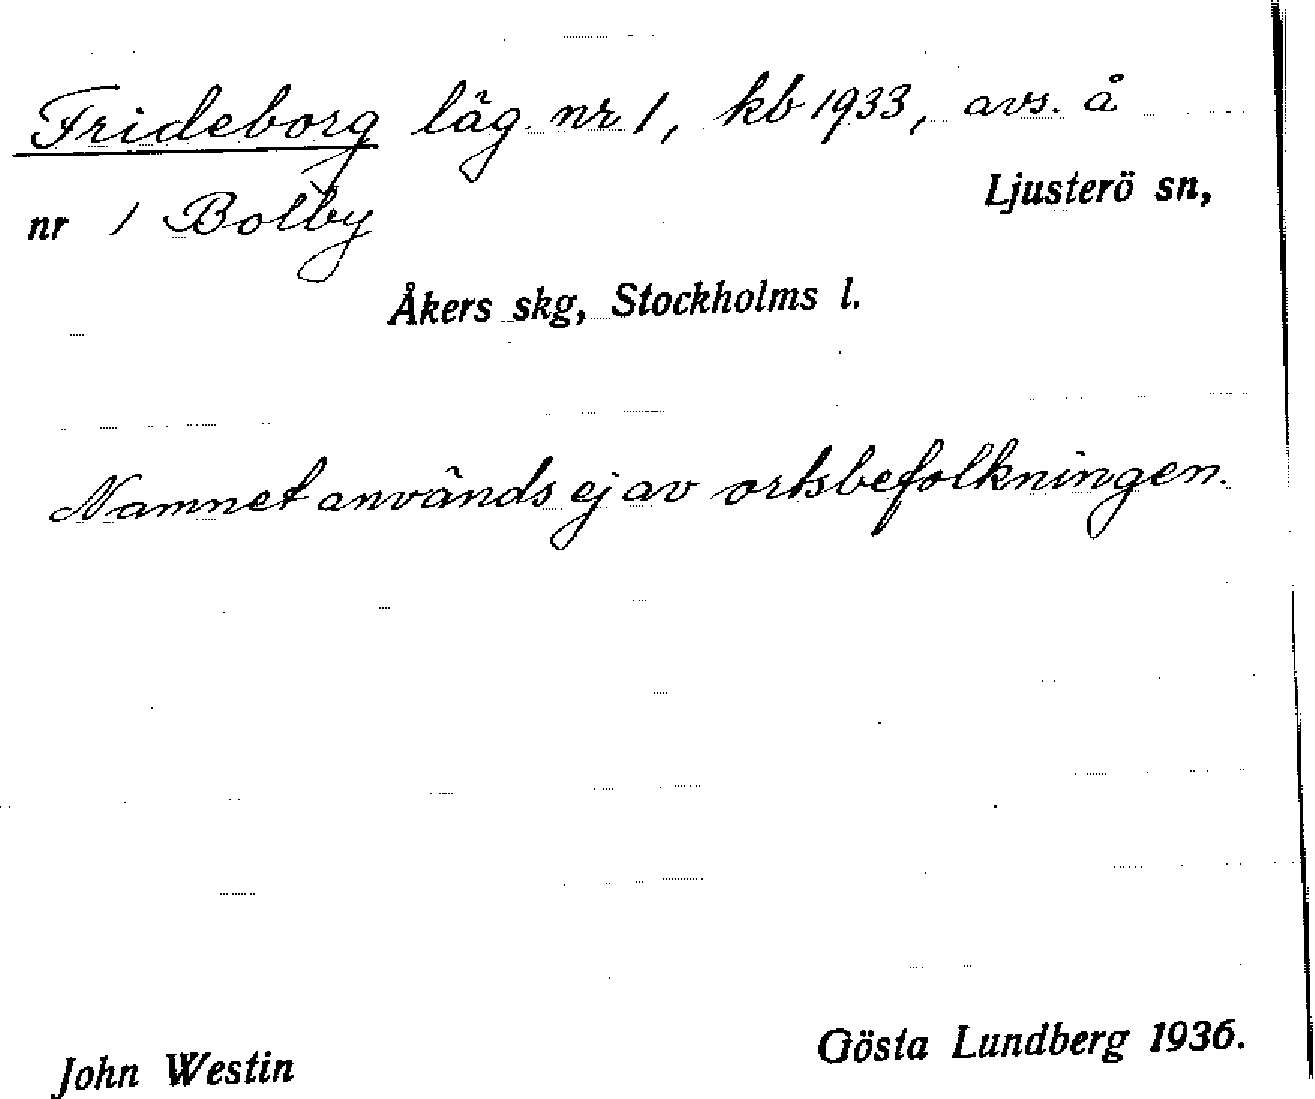 Frideborg läg. nr 1, kb 1933, avs. å
Ljusterö sn,
nr 1 Bolby
Åkers skg, Stockholms l.
Namnet används ej av ortsbefolkningen.
John Westin
Gösta Lundberg 1936.